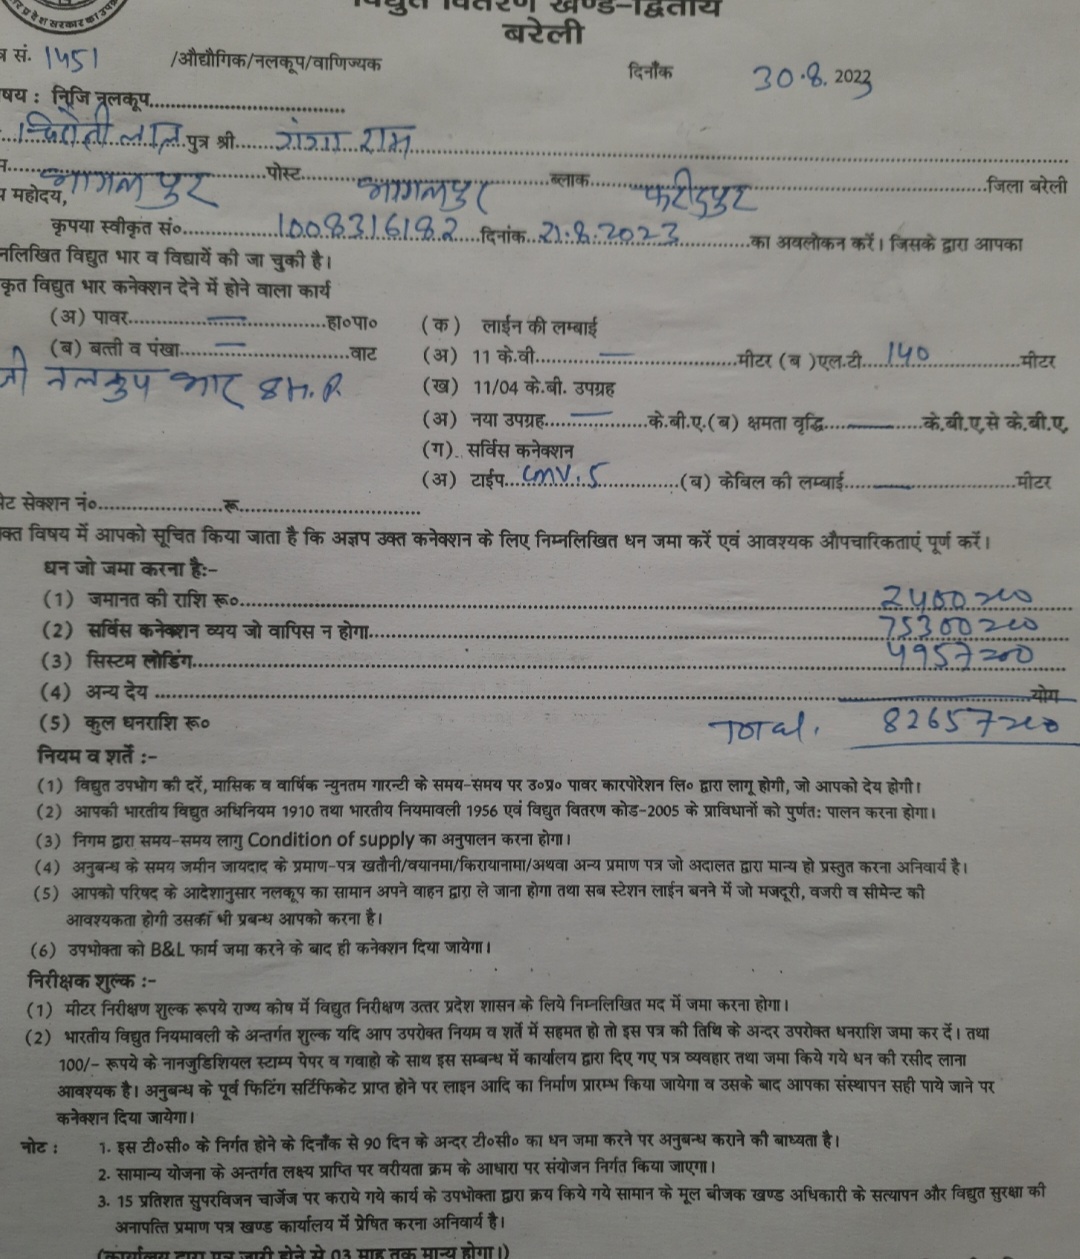 विद्युत वितरण खण्ड-द्वितीय
बरेली
सं. 1451 /औद्यौगिक/नलकूप/वाणिज्यक दिनाँक 30.8.2023
षय : निजि नलकूप..............................
चिरोंजी लाल पुत्र श्री...... गंगा राम
भागलपुर पोस्ट... भागलपुर ब्लाक... फरीदपुर जिला बरेली
महोदय,
कृपया स्वीकृत सं०... 1008316182 दिनांक 21.8.2023 का अवलोकन करें। जिसके द्वारा आपका
नलिखित विद्युत भार व विद्यायें की जा चुकी है।
कृत विद्युत भार कनेक्शन देने में होने वाला कार्य
(अ) पावर........ — ........हा०पा० (क) लाईन की लम्बाई
(ब) बत्ती व पंखा........ — ........वाट (अ) 11 के.वी........ — ........मीटर (ब )एल.टी.... 140 ......मीटर
जी नलकूप भार 8 H.P. (ख) 11/04 के.बी. उपग्रह
(अ) नया उपग्रह..... — .....के.बी.ए.(ब) क्षमता वृद्धि..... — .....के.बी.ए.से के.बी.ए.
(ग). सर्विस कनेक्शन
(अ) टाईप.... LMV.5 ......(ब) केबिल की लम्बाई..... — .....मीटर
मेट सेक्शन नं०......................रू..............................
क्त विषय में आपको सूचित किया जाता है कि अज्ञप उक्त कनेक्शन के लिए निम्नलिखित धन जमा करें एवं आवश्यक औपचारिकताएं पूर्ण करें।
धन जो जमा करना है:-
(1) जमानत की राशि रू०........ 2400=00
(2) सर्विस कनेक्शन व्यय जो वापिस न होगा........ 75300=00
(3) सिस्टम लोडिंग........ 4957=00
(4) अन्य देय ........ योग
(5) कुल धनराशि रू० Total. 82657=00
नियम व शर्ते :-
(1) विद्युत उपभोग की दरें, मासिक व वार्षिक न्युनतम गारन्टी के समय-समय पर उ०प्र० पावर कारपोरेशन लि० द्वारा लागू होगी, जो आपको देय होगी।
(2) आपकी भारतीय विद्युत अधिनियम 1910 तथा भारतीय नियमावली 1956 एवं विद्युत वितरण कोड-2005 के प्राविधानों को पुर्णत: पालन करना होगा।
(3) निगम द्वारा समय-समय लागु Condition of supply का अनुपालन करना होगा।
(4) अनुबन्ध के समय जमीन जायदाद के प्रमाण-पत्र खतौनी/वयानमा/किरायानामा/अथवा अन्य प्रमाण पत्र जो अदालत द्वारा मान्य हो प्रस्तुत करना अनिवार्य है।
(5) आपको परिषद के आदेशानुसार नलकूप का सामान अपने वाहन द्वारा ले जाना होगा तथा सब स्टेशन लाईन बनने में जो मजदूरी, वजरी व सीमेन्ट की
आवश्यकता होगी उसकाँ भी प्रबन्ध आपको करना है।
(6) उपभोक्ता को B&L फार्म जमा करने के बाद ही कनेक्शन दिया जायेगा।
निरीक्षक शुल्क :-
(1) मीटर निरीक्षण शुल्क रूपये राज्य कोष में विद्युत निरीक्षण उत्तर प्रदेश शासन के लिये निम्नलिखित मद में जमा करना होगा।
(2) भारतीय विद्युत नियमावली के अन्तर्गत शुल्क यदि आप उपरोक्त नियम व शर्ते में सहमत हो तो इस पत्र की तिथि के अन्दर उपरोक्त धनराशि जमा कर दें। तथा
100/- रूपये के नानजुडिशियल स्टाम्प पेपर व गवाहो के साथ इस सम्बन्ध में कार्यालय द्वारा दिए गए पत्र व्यवहार तथा जमा किये गये धन की रसीद लाना
आवश्यक है। अनुबन्ध के पूर्व फिटिंग सर्टिफिकेट प्राप्त होने पर लाइन आदि का निर्माण प्रारम्भ किया जायेगा व उसके बाद आपका संस्थापन सही पाये जाने पर
कनेक्शन दिया जायेगा।
नोट : 1. इस टी०सी० के निर्गत होने के दिनाँक से 90 दिन के अन्दर टी०सी० का धन जमा करने पर अनुबन्ध कराने की बाध्यता है।
2. सामान्य योजना के अन्तर्गत लक्ष्य प्राप्ति पर वरीयता क्रम के आधारा पर संयोजन निर्गत किया जाएगा।
3. 15 प्रतिशत सुपरविजन चार्जेज पर कराये गये कार्य के उपभोक्ता द्वारा क्रय किये गये सामान के मूल बीजक खण्ड अधिकारी के सत्यापन और विद्युत सुरक्षा की
अनापत्ति प्रमाण पत्र खण्ड कार्यालय में प्रेषित करना अनिवार्य है।
(कार्यालय द्वारा पत्र जारी होने से 03 माह तक मान्य होगा।)